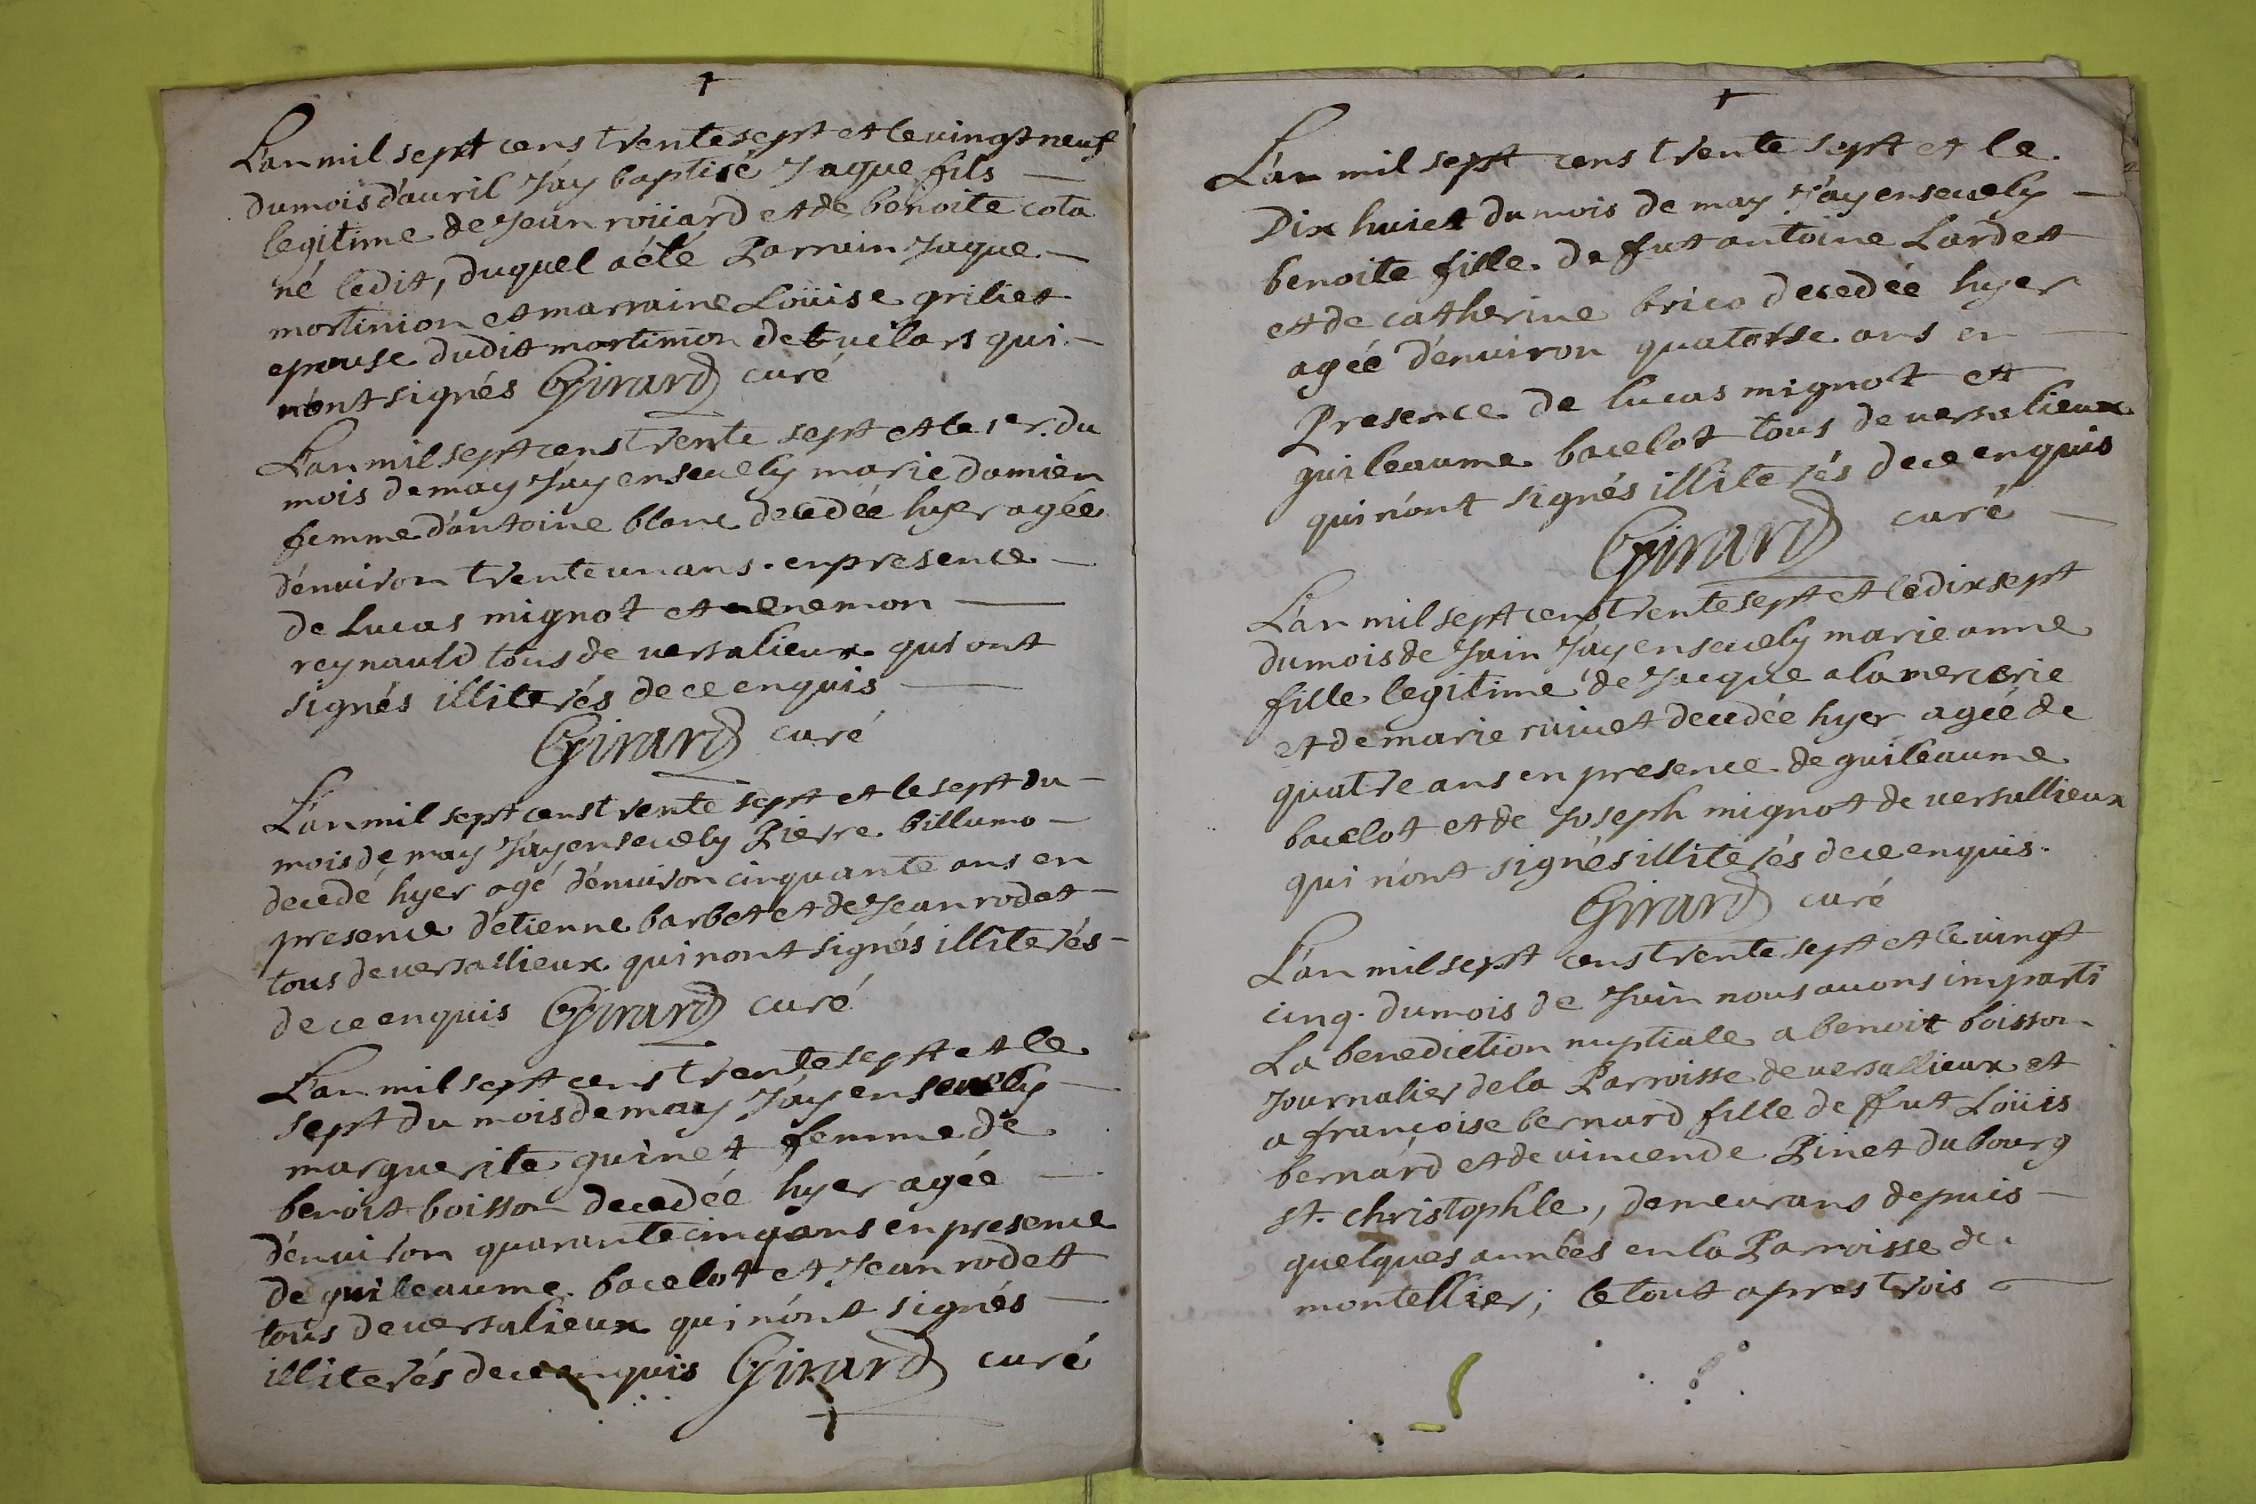 L'an mil sept cens trente sept et le vingt neuf
du mois d'auril J'ay baptisé Jaque fils
legitime de Jean roüard et de benoite cota
né ledit, duquel a été Parrain Jaque
mortinion et marraine Loüise griliet
epouse dudit mortimon de uilars qui
n'ont signés Girard curé
L'an mil sept cens trente sept et le 1er. du
mois de may J'ay enseuely marie damien
femme d'antoine blanc decedée hyer agée
d'enuiron trente un ans . en presence
de Lucas mignot et enemon
reynauld tous de uersalieux qui ont
signés illiterés de ce enquis
Girard curé
L'an mil sept cens trente sept et le sept du
mois de may J'ay enseuely Pierre billumo
decedé hyer agé d'enuiron cinquante ans en
presence d'étienne barbet et de Jean rodet
tous de uersallieux qui n'ont signés illiterés
de ce enquis Girard curé
L'an mil sept cens trente sept et le
sept du mois de may J'ay enseuely
marguerite guinet femme de
benoit boisson decedée hyer agée
d'enuiron quarante cinq ans en presence
de guileaume bacelot et Jean rodett
tous de uersalieux qui n'ont signés
illiterés de ce enquis Girard curé
L'an mil sept cens trente sept et le
Dix huict du mois de may J'ay enseuely
benoite fille de fut antoine Lardett
et de catherine brico decedée hyer
agée d'enuiron quatorse ans en
Presence de lucas mignot et
guileaume bacelot tous de uersalieux
qui n'ont signés illiterés de ce enquis
Girard curé
L'an mil sept cens trente sept et le dix sept
du mois de Juin J'ay enseuely marie anne
fille legitime de Jacque alamercerie
et de marie riuuet decedée hyer agée de
quatre ans en presence de guileaume
bacelot et de Joseph mignot de uersallieux
qui n'ont signés illiterés de ce enquis.
Girard curé
L'an mil sept cens trente sept et le uingt
cinq. du mois de Juin nous auons imparti
La benediction nuptiale a benoit boisson
Journalier de la Parroisse de uersallieux et
a françoise bernard fille de ffut Loüis
bernard et de uincende Pinet du bourg
st. christophle, demeurans depuis
quelques années en la Parroisse de
montellier; le tout apres trois